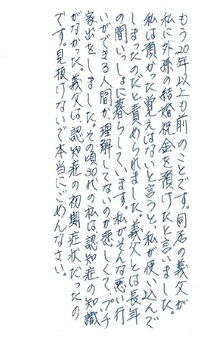 もう20年以上も前のことです。同居の義父が
私に外孫の結婚祝金を預けたと言いました。
私は預かった覚えはないと言うと、私が使い込んで
しまったのだと責められました。義父とは長年
の間いっしょに暮らしています。私がそんな悪い行
いができる人間か、理解してないのが悲しくて、プチ
家出をしました。その頃30代の私は認知症の知識
がなかった。義父は、認知症の初期症状だったの
です。見抜けないで本当にごめんなさい。